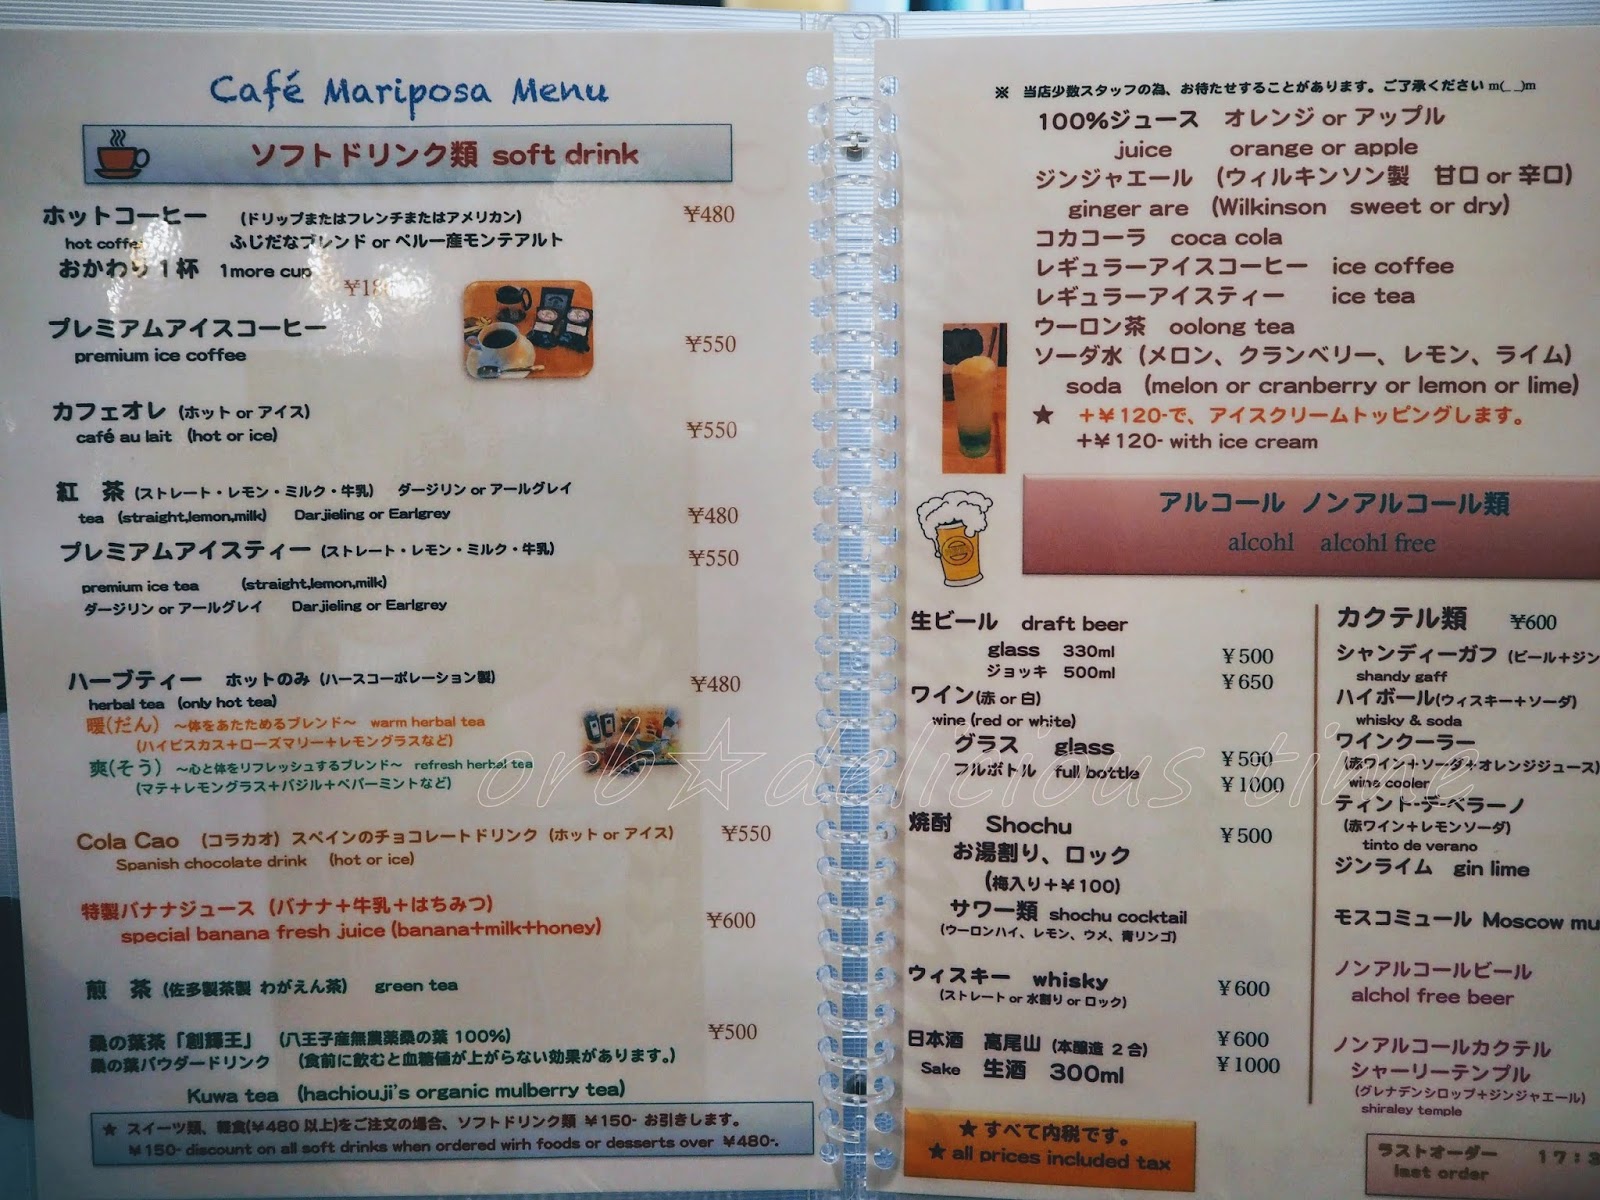 Café Mariposa Menu
ソフトドリンク類 soft drink
ホットコーヒー (ドリップまたはフレンチまたはアメリカン) ¥480
hot coffee ふじだなブレンド or ペルー産モンテアルト
おかわり1杯 1more cup
プレミアムアイスコーヒー
premium ice coffee ¥550
カフェオレ (ホット or アイス)
café au lait (hot or ice) ¥550
紅 茶 (ストレート・レモン・ミルク・牛乳) ダージリン or アールグレイ
tea (straight,lemon,milk) Darjieling or Earlgrey ¥480
プレミアムアイスティー (ストレート・レモン・ミルク・牛乳) ¥550
premium ice tea (straight,lemon,milk)
ダージリン or アールグレイ Darjieling or Earlgrey
ハーブティー ホットのみ (ハースコーポレーション製) ¥480
herbal tea (only hot tea)
暖(だん) ～体をあたためるブレンド～ warm herbal tea
(ハイビスカス+ローズマリー+レモングラスなど)
爽(そう) ～心と体をリフレッシュするブレンド～ refresh herbal tea
(マテ+レモングラス+バジル+ペパーミントなど)
Cola Cao (コラカオ) スペインのチョコレートドリンク (ホット or アイス) ¥550
Spanish chocolate drink (hot or ice)
特製バナナジュース (バナナ+牛乳+はちみつ) ¥600
special banana fresh juice (banana+milk+honey)
煎 茶 (佐多製茶製 わがえん茶) green tea
桑の葉茶「創輝王」 (八王子産無農薬桑の葉 100%) ¥500
桑の葉パウダードリンク (食前に飲むと血糖値が上がらない効果があります。)
Kuwa tea (hachiouji's organic mulberry tea)
★ スイーツ類、軽食(¥480以上)をご注文の場合、ソフトドリンク類 ¥150- お引きします。
¥150- discount on all soft drinks when ordered wirh foods or desserts over ¥480-.
※ 当店少数スタッフの為、お待たせすることがあります。ご了承ください m(_ _)m
100%ジュース オレンジ or アップル
juice orange or apple
ジンジャエール (ウィルキンソン製 甘口 or 辛口)
ginger are (Wilkinson sweet or dry)
コカコーラ coca cola
レギュラーアイスコーヒー ice coffee
レギュラーアイスティー ice tea
ウーロン茶 oolong tea
ソーダ水 (メロン、クランベリー、レモン、ライム)
soda (melon or cranberry or lemon or lime)
★ +¥120-で、アイスクリームトッピングします。
+¥120- with ice cream
アルコール ノンアルコール類
alcohl alcohl free
生ビール draft beer
glass 330ml ¥500
ジョッキ 500ml ¥650
ワイン(赤 or 白)
wine (red or white)
グラス glass ¥500
フルボトル full bottle ¥1000
焼酎 Shochu ¥500
お湯割り、ロック
(梅入り+¥100)
サワー類 shochu cocktail
(ウーロンハイ、レモン、ウメ、青リンゴ)
ウィスキー whisky ¥600
(ストレート or 水割り or ロック)
日本酒 高尾山 (本醸造 2合) ¥600
Sake 生酒 300ml ¥1000
★ すべて内税です。
★ all prices included tax
カクテル類 ¥600
シャンディーガフ (ビール+ジン
shandy gaff
ハイボール(ウィスキー+ソーダ)
whisky & soda
ワインクーラー
(赤ワイン+ソーダ+オレンジジュース)
wine cooler
ティント-デ-ベラーノ
(赤ワイン+レモンソーダ)
tinto de verano
ジンライム gin lime
モスコミュール Moscow mu
ノンアルコールビール
alchol free beer
ノンアルコールカクテル
シャーリーテンプル
(グレナデンシロップ+ジンジャエール)
shiraley temple
ラストオーダー 17:3
last order
orb☆delicious time